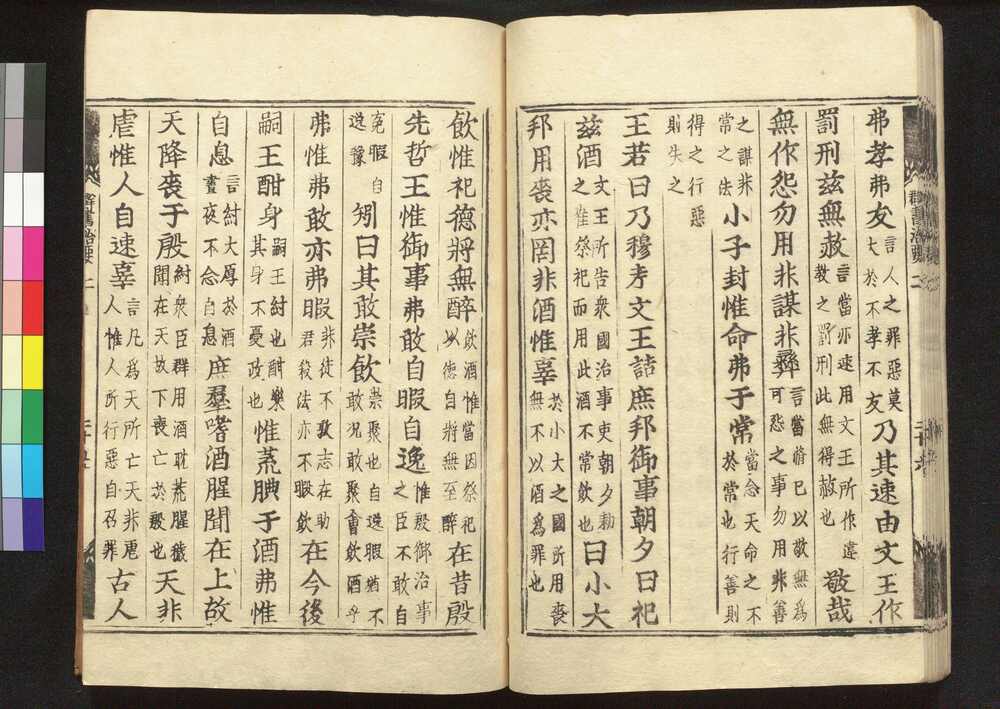 弗孝弗友言人之罪惡莫大於不孝不友乃其速由文王作
罰刑茲無赦言當亦速用文王所作違教之罰刑此無得赦也敬哉
無作怨勿用非謀非彝言當脩已以敬無爲可怨之事勿用非善
之謀非常之法小子封惟命弗于常當念天命之不於常也行善則
得之行惡則失之
王若曰乃穆考文王誥庶邦御事朝夕曰祀
茲酒文王所告衆國治事吏朝夕勑之惟祭祀而用此酒不常飲也曰小大
邦用喪亦罔非酒惟辜於小大之國所用喪無不以酒爲罪也
飲惟祀德將無醉飲酒惟當因祭祀以德自將無至醉在昔殷
先哲王惟御事弗敢自暇自逸惟殷御治事之臣不敢自
寬暇自逸豫矧曰其敢崇飲崇聚也自逸暇猶不敢况敢聚會飲酒乎
弗惟弗敢亦弗暇非徒不敢志在助君殺法亦不暇飲在今後
嗣王酣身嗣王紂也酣樂其身不憂政也惟荒腆于酒弗惟
自息言紂大厚於酒晝夜不念自息庶羣嗜酒腥聞在上故
天降喪于殷紂衆臣群用酒耽荒腥穢聞在天故下喪亡於殷也天非
虐惟人自速辜言凡爲天所亡天非虐人惟人所行惡自召罪古人